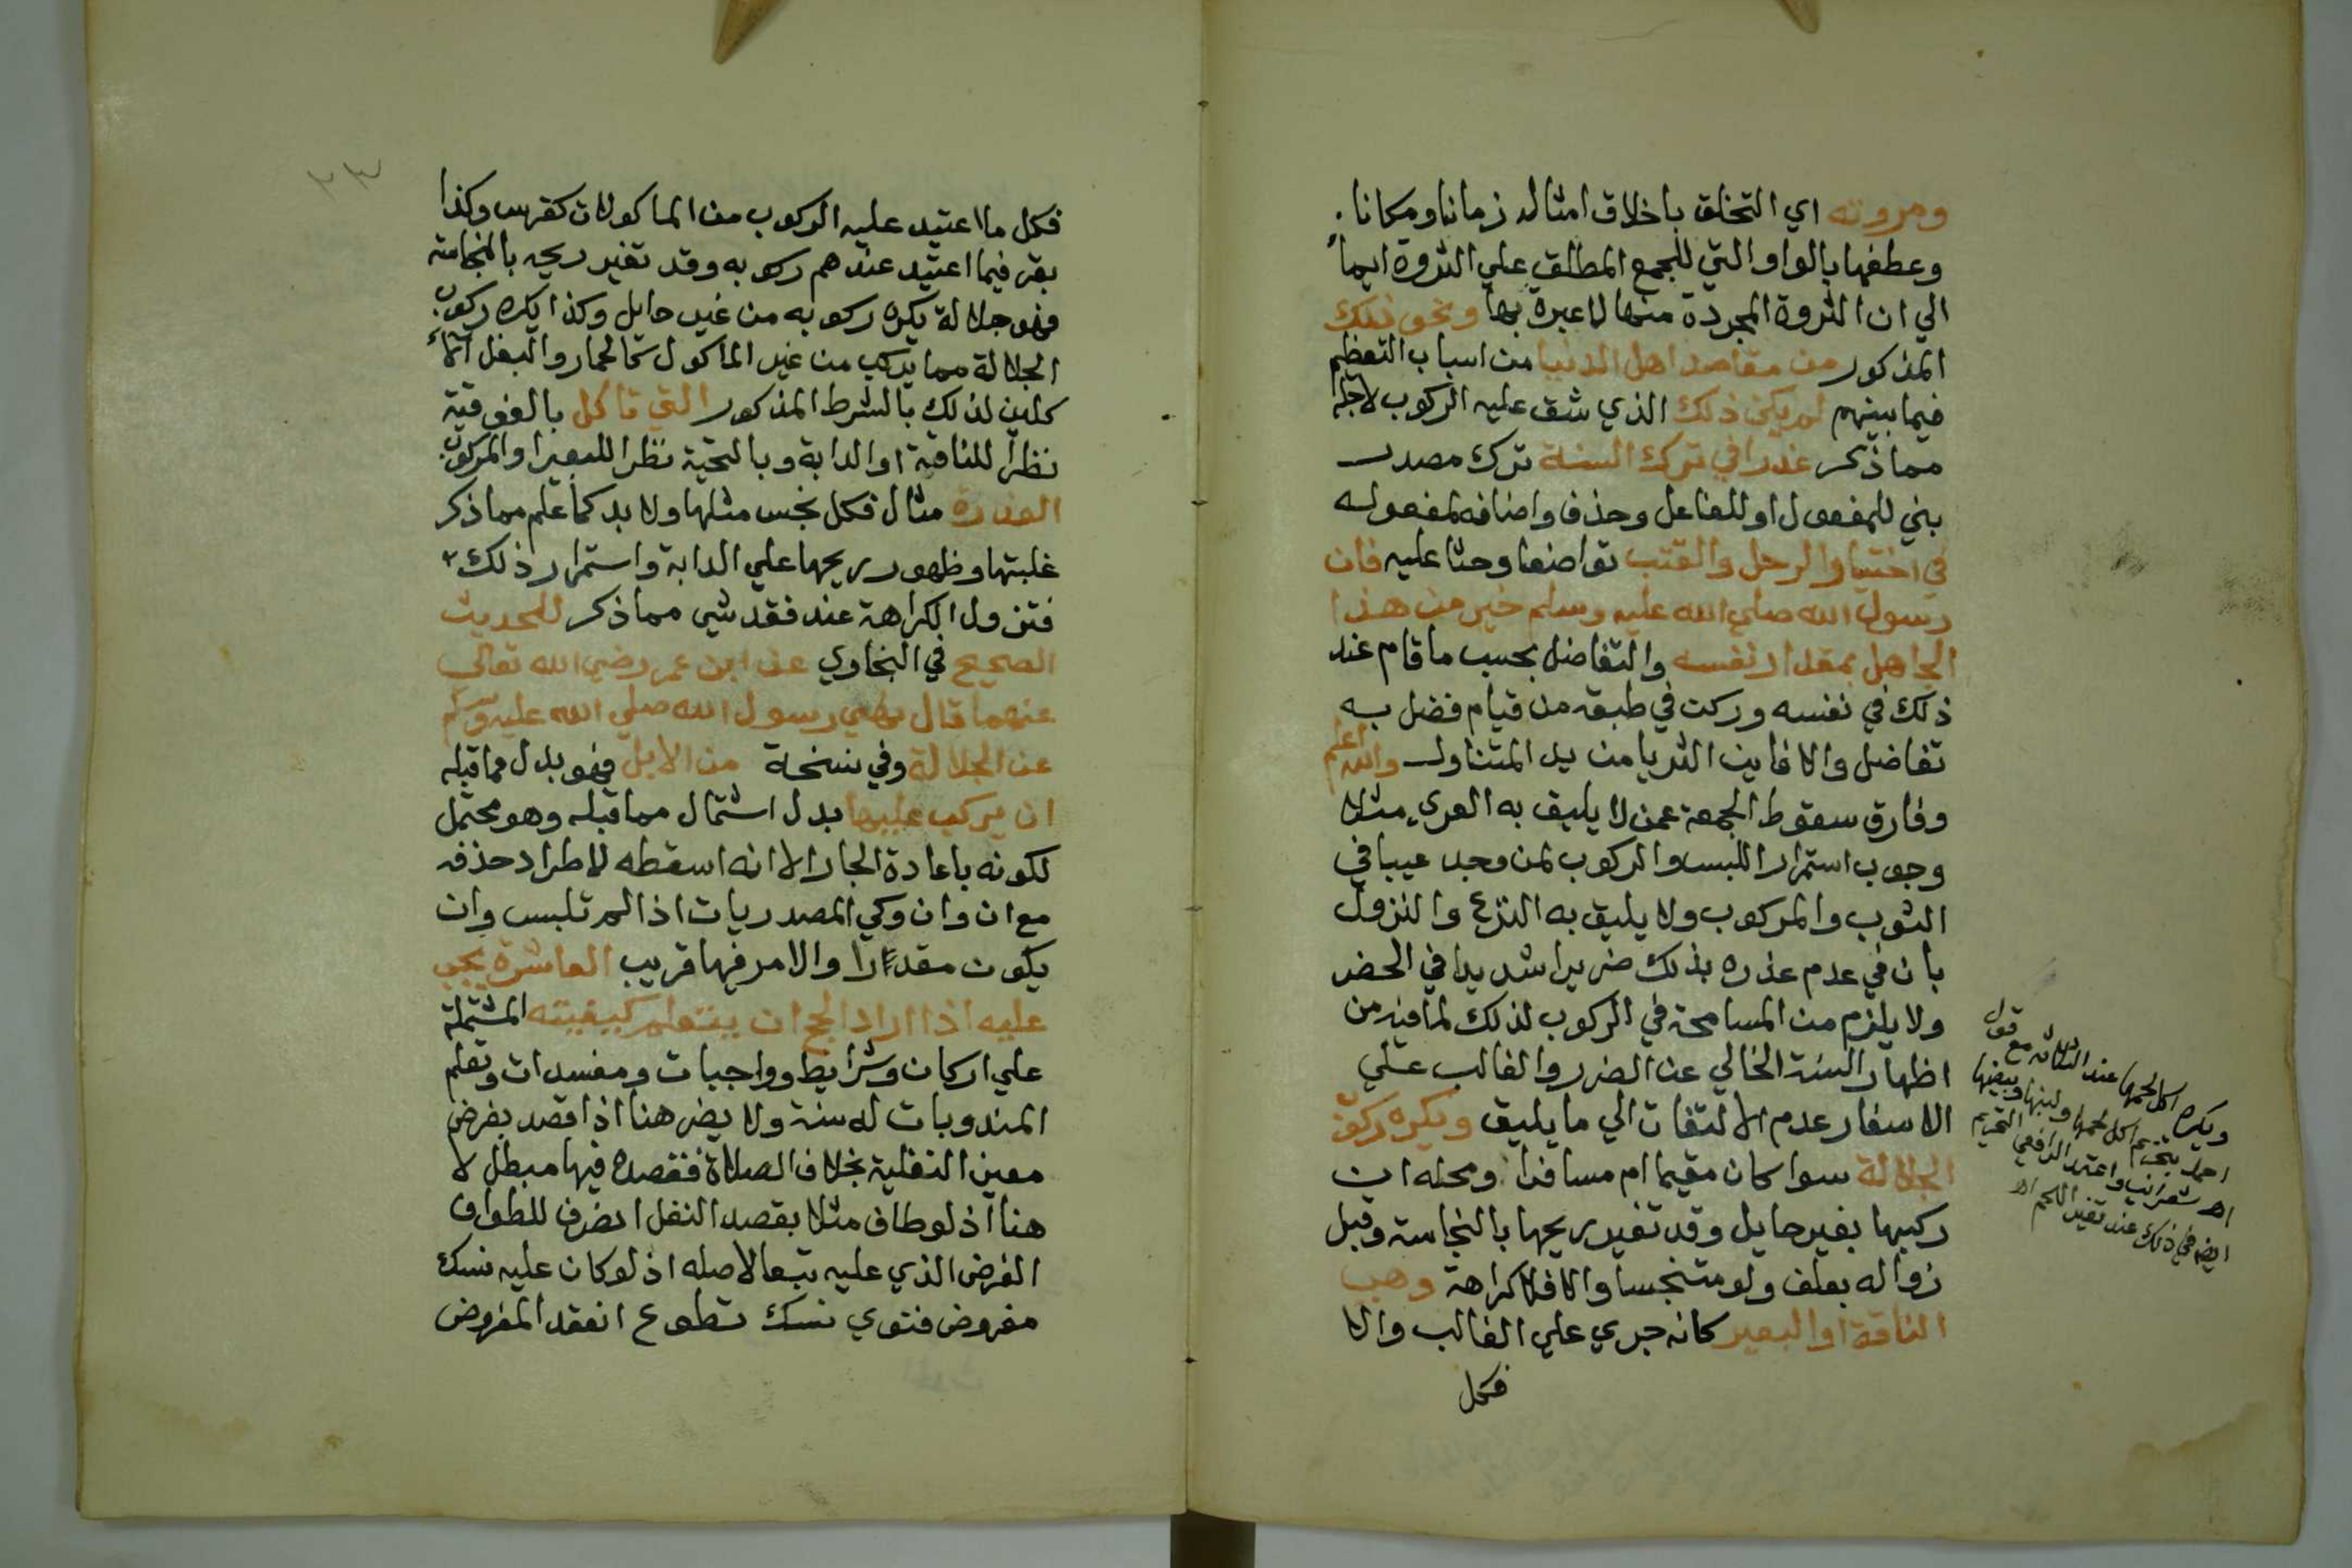 ومروته اي التخلق باخلاق امثاله زمانا ومكانا.
وعطفها بالواو التي للجمع المطلق علي الثروة ايماء
الي ان الثروة المجردة منها لا عبرة بها ونحو ذلك
المذكور من مقاصد اهل الدنيا من اسباب التعظيم
فيما بينهم لم يكن ذلك الذي شق عليه الركوب لاجله
مما ذكر عذرا في ترك السنة ترك مصدر
بني للمفعول او للفاعل وحذف واضافه لمفعوله
في اختيار الرحل والقتب تواضعا وحثا عليه فان
رسول الله صلي الله عليه وسلم خير من هذا
الجاهل بمقدار نفسه والتفاضل بحسب ما قام عند
ذلك في نفسه وركت في طبقه من قيام فضل به
تفاضل والا فاين الثريا من يد المتناول والله اعلم
وفارق سقوط الجمعة عمن لا يليق به العري مثلا
وجوب استمرار اللبس والركوب لمن وجد عيبا في
الثوب والمركوب ولا يليق به النزع والنزول
بان في عدم عذره بذلك ضررا شديدا في الحضر
ولا يلزم من المسامحة في الركوب لذلك لما فيه من
اظهار السنة الخالي عن الضرر والغالب علي
الاسفار عدم الالتفات الي ما يليق ويكره ركوب
الجلالة سوا كان مقيما ام مسافرا ومحله ان
ركبها بغير حايل وقد تغير ريحها بالنجاسة وقبل
زواله بعلف ولو متنجسا والا فلا كراهة وهي
الناقة او البعير كانه جري علي الغالب والا
فكل
ويكره اكل لحمها عند الثلاثه مع قول
احمد بتحريم اكل لحمها ولبنها وبيضها
اهـ شعراني واعتمد الرافعي التحريم
ايضا في ذلك عند تغير اللحم اهـ
٢٣
فكل ما اعتيد عليه الركوب من الماكولات كفرس وكذا
بقر فيما اعتيد عندهم ركوبه وقد تغير ريحه بالنجاسة
فهو جلالة يكره ركوبه من غير حايل وكذا يكره ركوب
الجلالة مما يركب من غير الماكول كالحمار والبغل
كلين لذلك بالشرط المذكور التي تاكل بالفوقية
نظرا للناقة او الدابة وبالتحية نظرا للبعير او المركوب
العذرة مثال فكل نجس مثلها ولا بد كما علم مما ذكر
غلبتها وظهور ريحها علي الدابة واستمرار ذلك
فتزول الكراهة عند فقد شي مما ذكر للحديث
الصحيح في البخاري عن ابن عمر رضي الله تعالي
عنهما قال نهي رسول الله صلي الله عليه وسلم
عن الجلالة وفي نسخة من الابل فهو بدل مما قبله
ان يركب عليها بدل اشتمال مما قبله وهو محتمل
لكونه باعادة الجار الا انه اسقطه لاطراد حذفه
مع ان وان وكي المصدريات اذا لم تلبس وان
يكون مقدرا والامر فيها قريب العاشرة يجب
عليه اذا اراد الحج ان يتعلم كيفيته المشتملة
علي اركان وشرايط وواجبات ومفسدات وتعلم
المندوبات له سنة ولا يضر هنا اذا قصد بفرض
معين النفلية بخلاف الصلاة فقصده فيها مبطل لا
هنا اذ لو طاف مثلا بقصد النفل انصرف للطواف
الفرض الذي عليه تبعا لاصله اذ لو كان عليه نسك
مفروض فنوي نسك تطوع انعقد المفروض